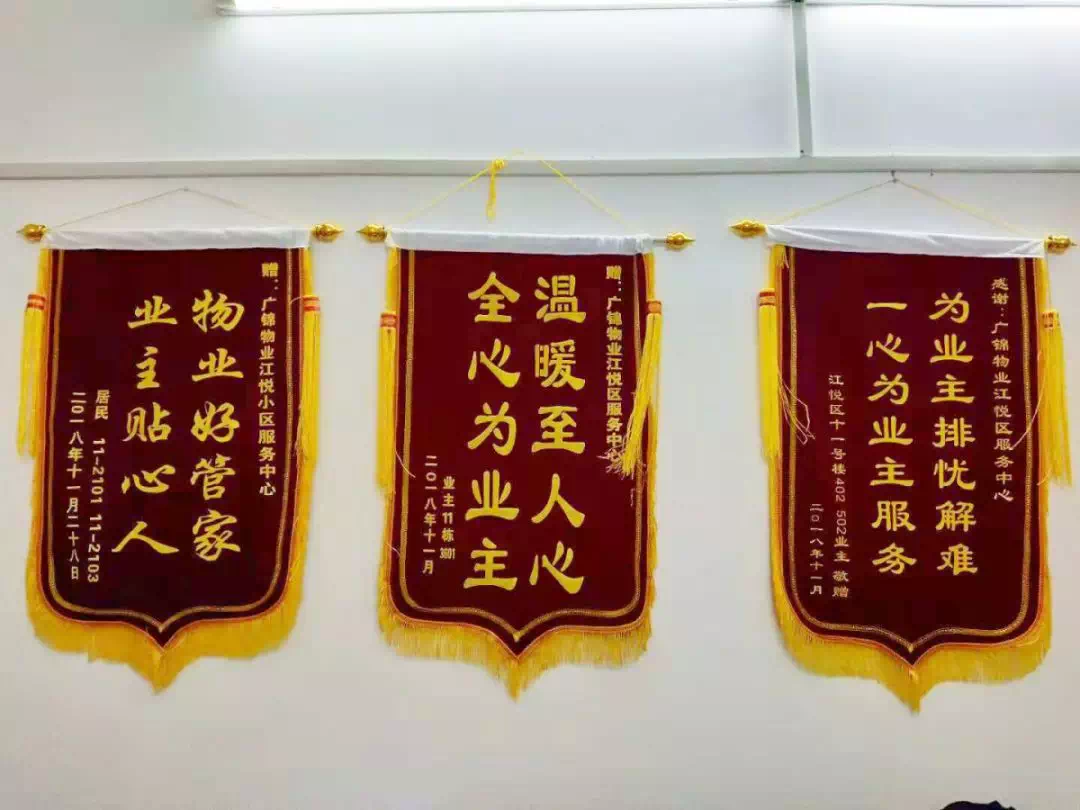 赠：广锦物业江悦小区服务中心
物业好管家
业主贴心人
居民 11-2101 11-2103
二〇一八年十一月二十八日
赠：广锦物业江悦区服务中心
温暖至人心
全心为业主
业主11栋3801
二〇一八年十一月
感谢：广锦物业江悦区服务中心
为业主排忧解难
一心为业主服务
江悦区十一号楼402 502业主 敬赠
二〇一八年十一月